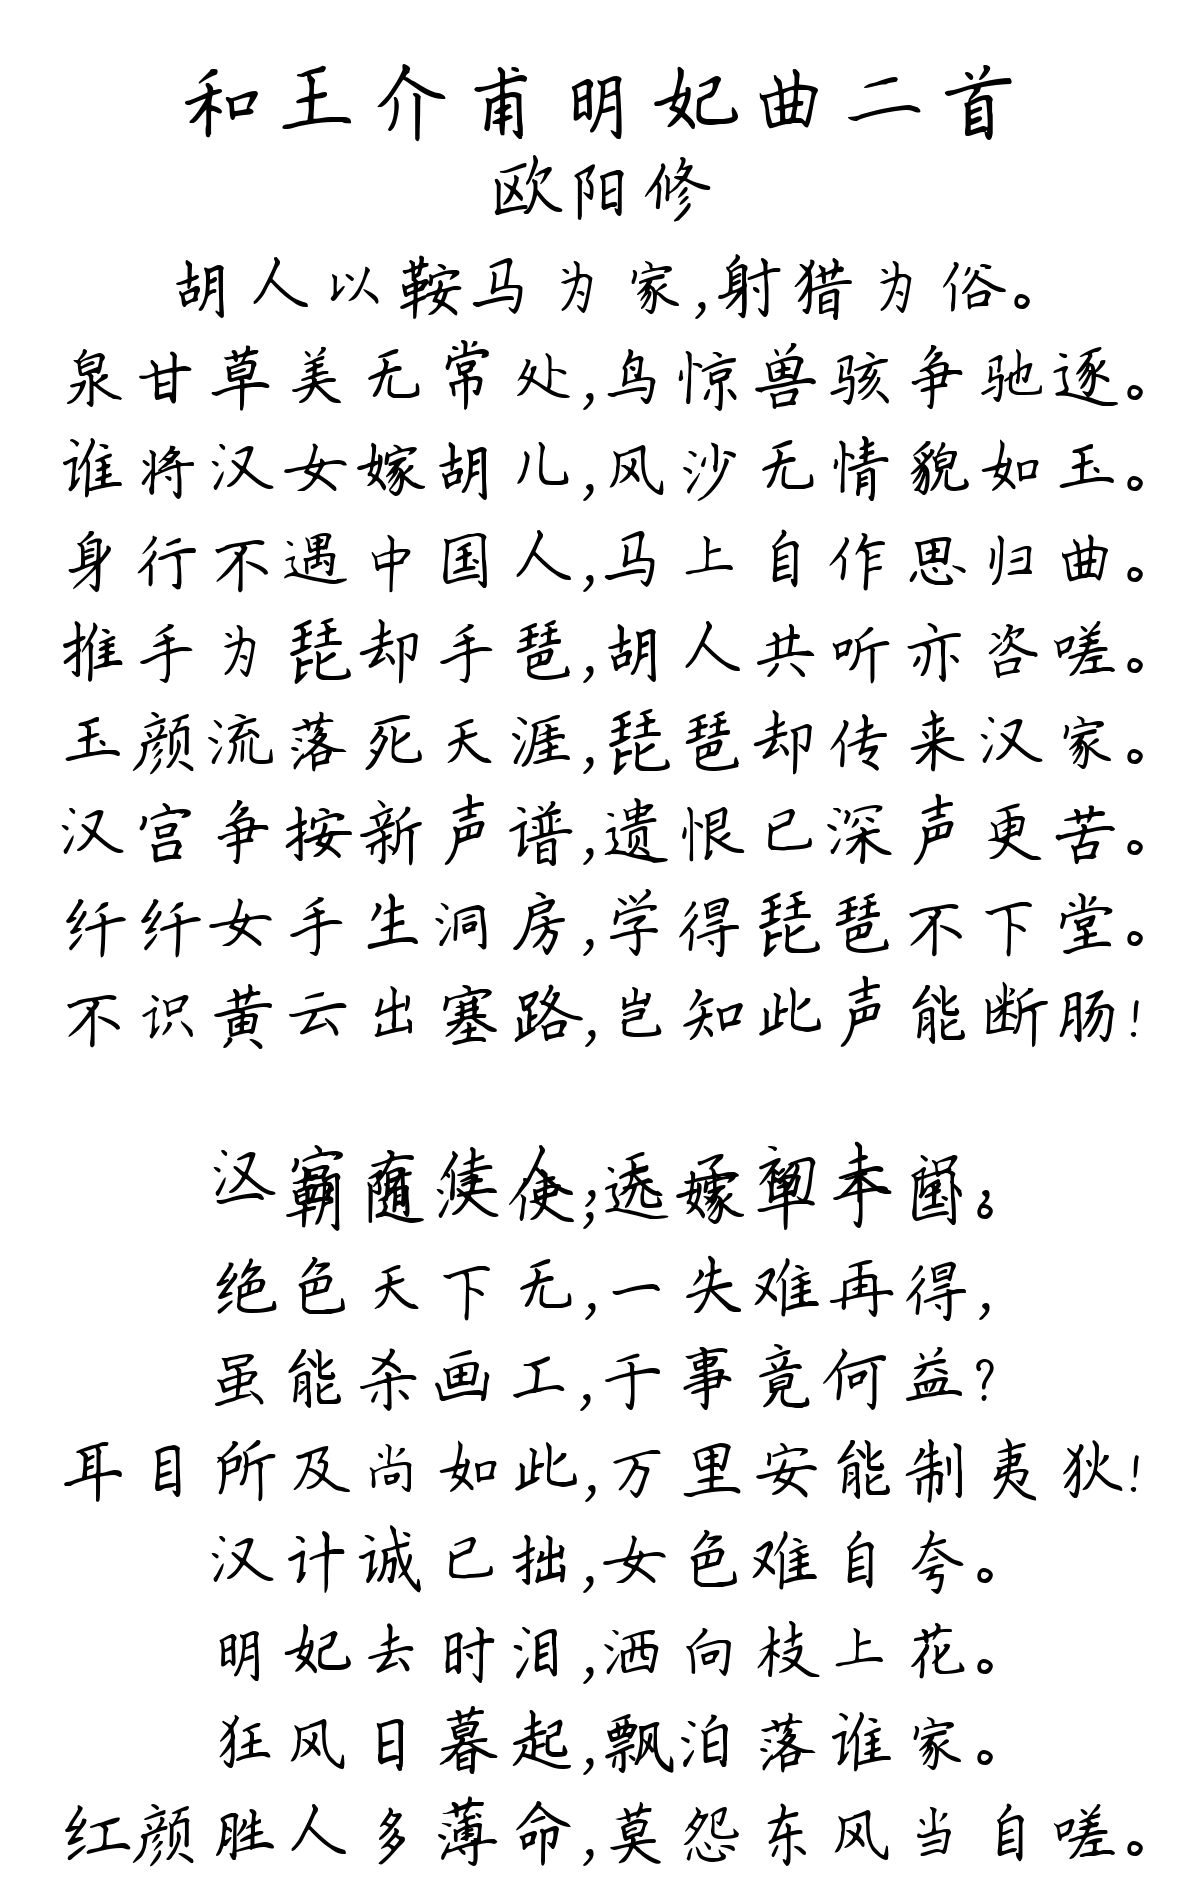 和王介甫明妃曲二首
欧阳修
胡人以鞍马为家,射猎为俗。
泉甘草美无常处,鸟惊兽骇争驰逐。
谁将汉女嫁胡儿,风沙无情貌如玉。
身行不遇中国人,马上自作思归曲。
推手为琵却手琶,胡人共听亦咨嗟。
玉颜流落死天涯,琵琶却传来汉家。
汉宫争按新声谱,遗恨已深声更苦。
纤纤女手生洞房,学得琵琶不下堂。
不识黄云出塞路,岂知此声能断肠!
汉宫有佳人,天子初未识。
一朝随汉使,远嫁单于国。
绝色天下无,一失难再得,
虽能杀画工,于事竟何益?
耳目所及尚如此,万里安能制夷狄!
汉计诚已拙,女色难自夸。
明妃去时泪,洒向枝上花。
狂风日暮起,飘泊落谁家。
红颜胜人多薄命,莫怨东风当自嗟。